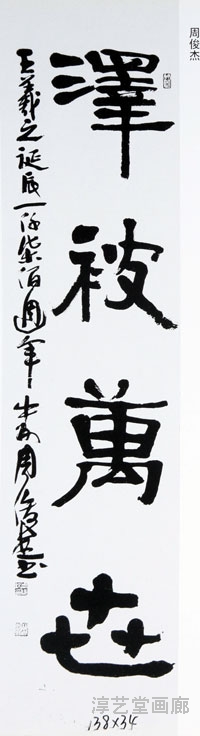 周俊杰
澤被萬世
王羲之誕辰一仟柒佰週年 周俊杰书
138×34
淳艺堂画廊